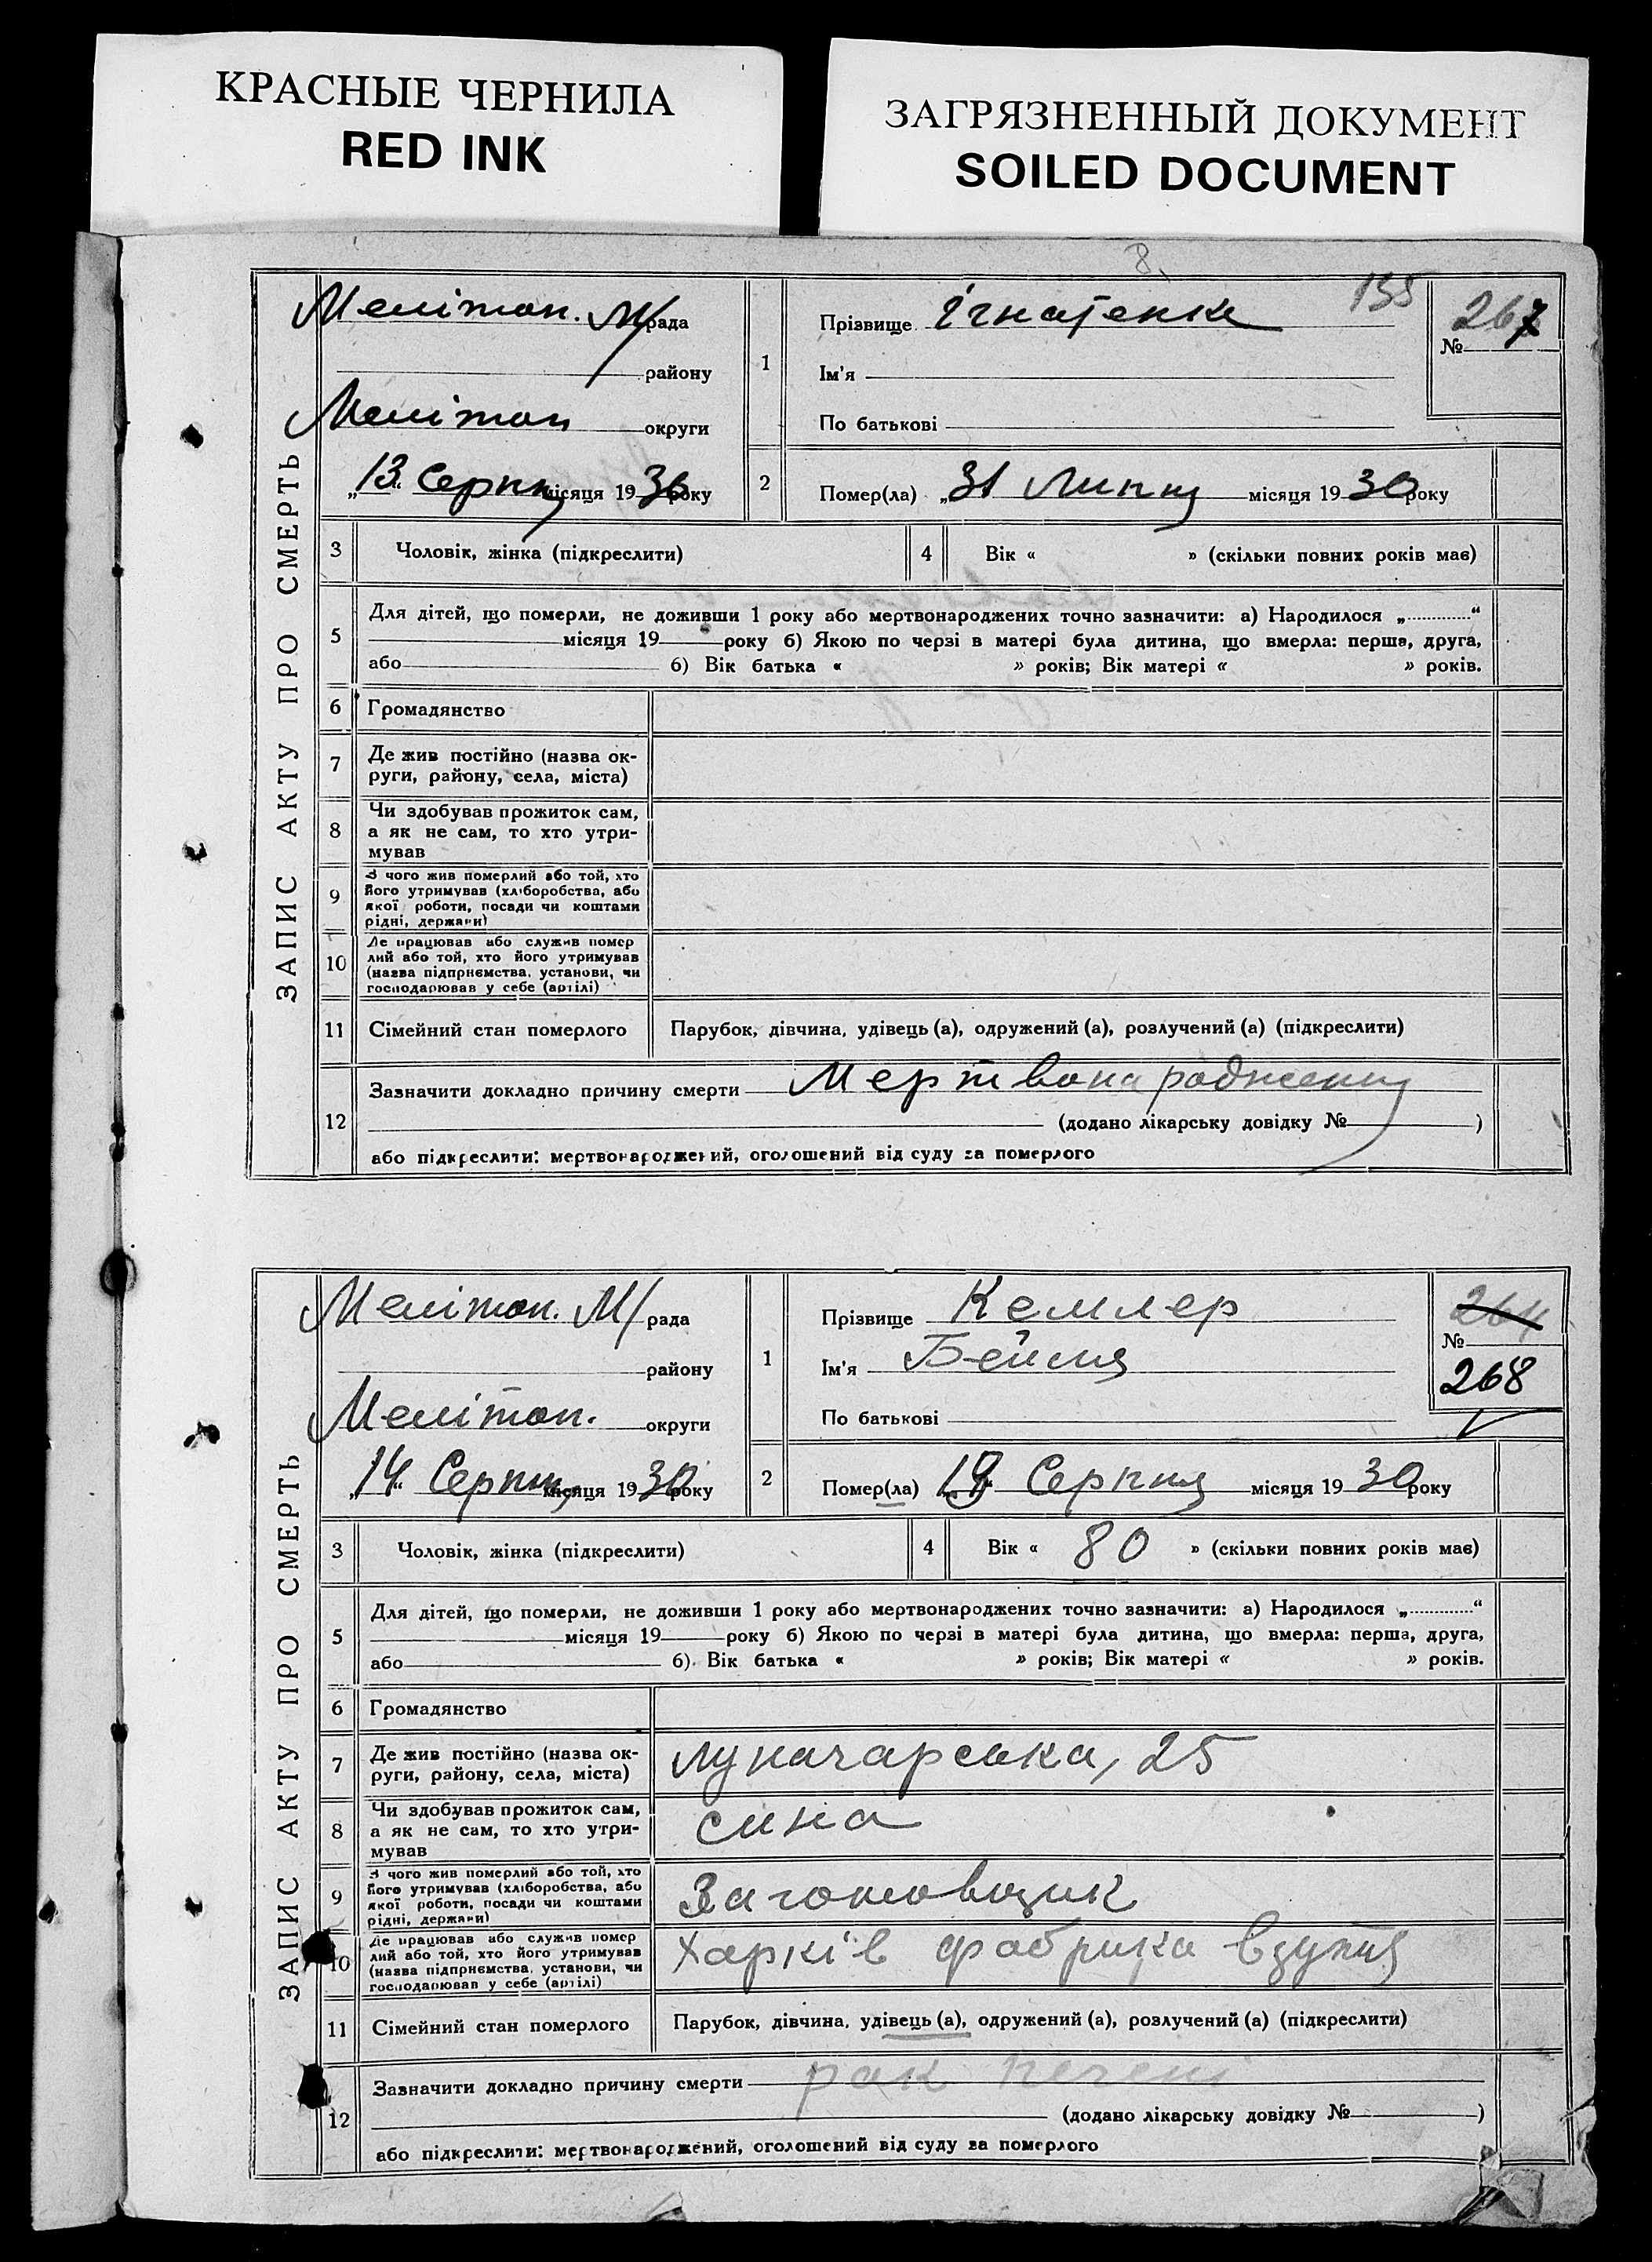 КРАСНЫЕ ЧЕРНИЛА
RED INK
ЗАГРЯЗНЕННЫЙ ДОКУМЕНТ
SOILED DOCUMENT
8
ЗАПИС АКТУ ПРО СМЕРТЬ
Мелітоп. М/рада
району
Мелітоп округи
„13" Серпня місяця 1930 року
1
Прізвище Ігнатенко
155
№ 267
Ім'я
По батькові
2
Помер(ла) „31 Липня місяця 1930 року
3 Чоловік, жінка (підкреслити)
4 Вік « » (скільки повних років має)
5 Для дітей, що померли, не доживши 1 року або мертвонароджених точно зазначити: а) Народилося „ “
місяця 19 року б) Якою по черзі в матері була дитина, що вмерла: перша, друга,
або б) Вік батька « » років; Вік матері « » років.
6 Громадянство
7 Де жив постійно (назва ок-
руги, району, села, міста)
8 Чи здобував прожиток сам,
а як не сам, то хто утри-
мував
9 З чого жив померлий або той, хто
його утримував (хліборобства, або
якої роботи, посади чи коштами
рідні, держави)
10 Де працював або служив помер
лий або той, хто його утримував
(назва підприємства, установи, чи
господарював у себе (артілі)
11 Сімейний стан померлого Парубок, дівчина, удівець (а), одружений (а), розлучений (а) (підкреслити)
12 Зазначити докладно причину смерти Мертвонародження
(додано лікарську довідку № )
або підкреслити: мертвонароджений, оголошений від суду за померлого
ЗАПИС АКТУ ПРО СМЕРТЬ
Мелітоп. М/рада
району
Мелітоп. округи
„14" Серпня місяця 1930 року
1
Прізвище Кемлер
264
№
268
Ім'я Бейля
По батькові
2
Помер(ла) Серпня місяця 1930 року
3 Чоловік, жінка (підкреслити)
4 Вік « 80 » (скільки повних років має)
5 Для дітей, що померли, не доживши 1 року або мертвонароджених точно зазначити: а) Народилося „ “
місяця 19 року б) Якою по черзі в матері була дитина, що вмерла: перша, друга,
або б) Вік батька « » років; Вік матері « » років.
6 Громадянство
7 Де жив постійно (назва ок-
руги, району, села, міста) Луначарська, 25
8 Чи здобував прожиток сам,
а як не сам, то хто утри-
мував сина
9 З чого жив померлий або той, хто
його утримував (хліборобства, або
якої роботи, посади чи коштами
рідні, держави) Заготовщик
10 Де працював або служив помер
лий або той, хто його утримував
(назва підприємства, установи, чи
господарював у себе (артілі) Харків фабрика взуття
11 Сімейний стан померлого Парубок, дівчина, удівець (а), одружений (а), розлучений (а) (підкреслити)
12 Зазначити докладно причину смерти рак печені
(додано лікарську довідку № )
або підкреслити: мертвонароджений, оголошений від суду за померлого